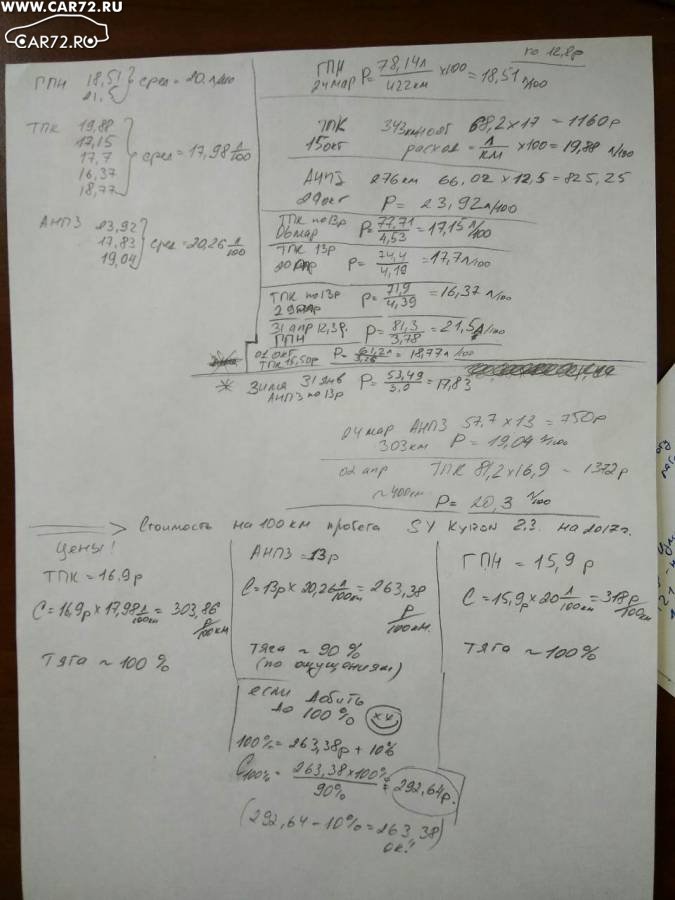 WWW.CAR72.RU
CAR72.RU
ГПН 18,51
21.5
сред = 20 л/100
ТПК 19,88
17,15
17,7
16,37
18,77
сред = 17,98 л/100
АНПЗ 23,92
17,83
19,04
сред = 20,26 л/100
по 12,8р
ГПН
24 мар P = 78,14л / 422км ×100 = 18,51 л/100
ТПК 343км 68,2×17 = 1160р
15 окт расход = л/км ×100 = 19,88 л/100
АНПЗ 276км 66,02×12,5 = 825,25
29 окт P = 23,92 л/100
ТПК по 13р
06 мар P = 77,71/4,53 = 17,15 л/100
ТПК 13р
20 апр P = 74,4/4,19 = 17,7 л/100
ТПК по 13р
29 P = 71,9/4,39 = 16,37 л/100
31 апр 12,3р.
ГПН P = 81,3/3,78 = 21,5 л/100
01 окт
ТПК 15,50р P = 61,2л/3,26 = 18,77 л/100
* Зима 31 янв
АНПЗ по 13р P = 53,49/3,0 = 17,83
24 мар АНПЗ 57,7×13 = 750р
303км P = 19,04 л/100
02 апр ТПК 81,2×16,9 = 1372р
~400км
P = 20,3 л/100
=> Стоимость на 100 км пробега SY Kyron 2.3. на 2017г.
Цены!
ТПК = 16,9р
C = 16,9р × 17,98 л/100км = 303,86 р/100км
Тяга ~ 100%
АНПЗ = 13р
C = 13р × 20,26 л/100км = 263,38 р/100км.
Тяга ~ 90%
(по ощущениям)
если добить
до 100%
100% = 263,38р + 10%
C100% = 263,38×100% / 90% = 292,64р.
(292,64 – 10% = 263,38)
ок!!
ГПН = 15,9р
C = 15,9р × 20 л/100км = 318р/100км
Тяга ~ 100%